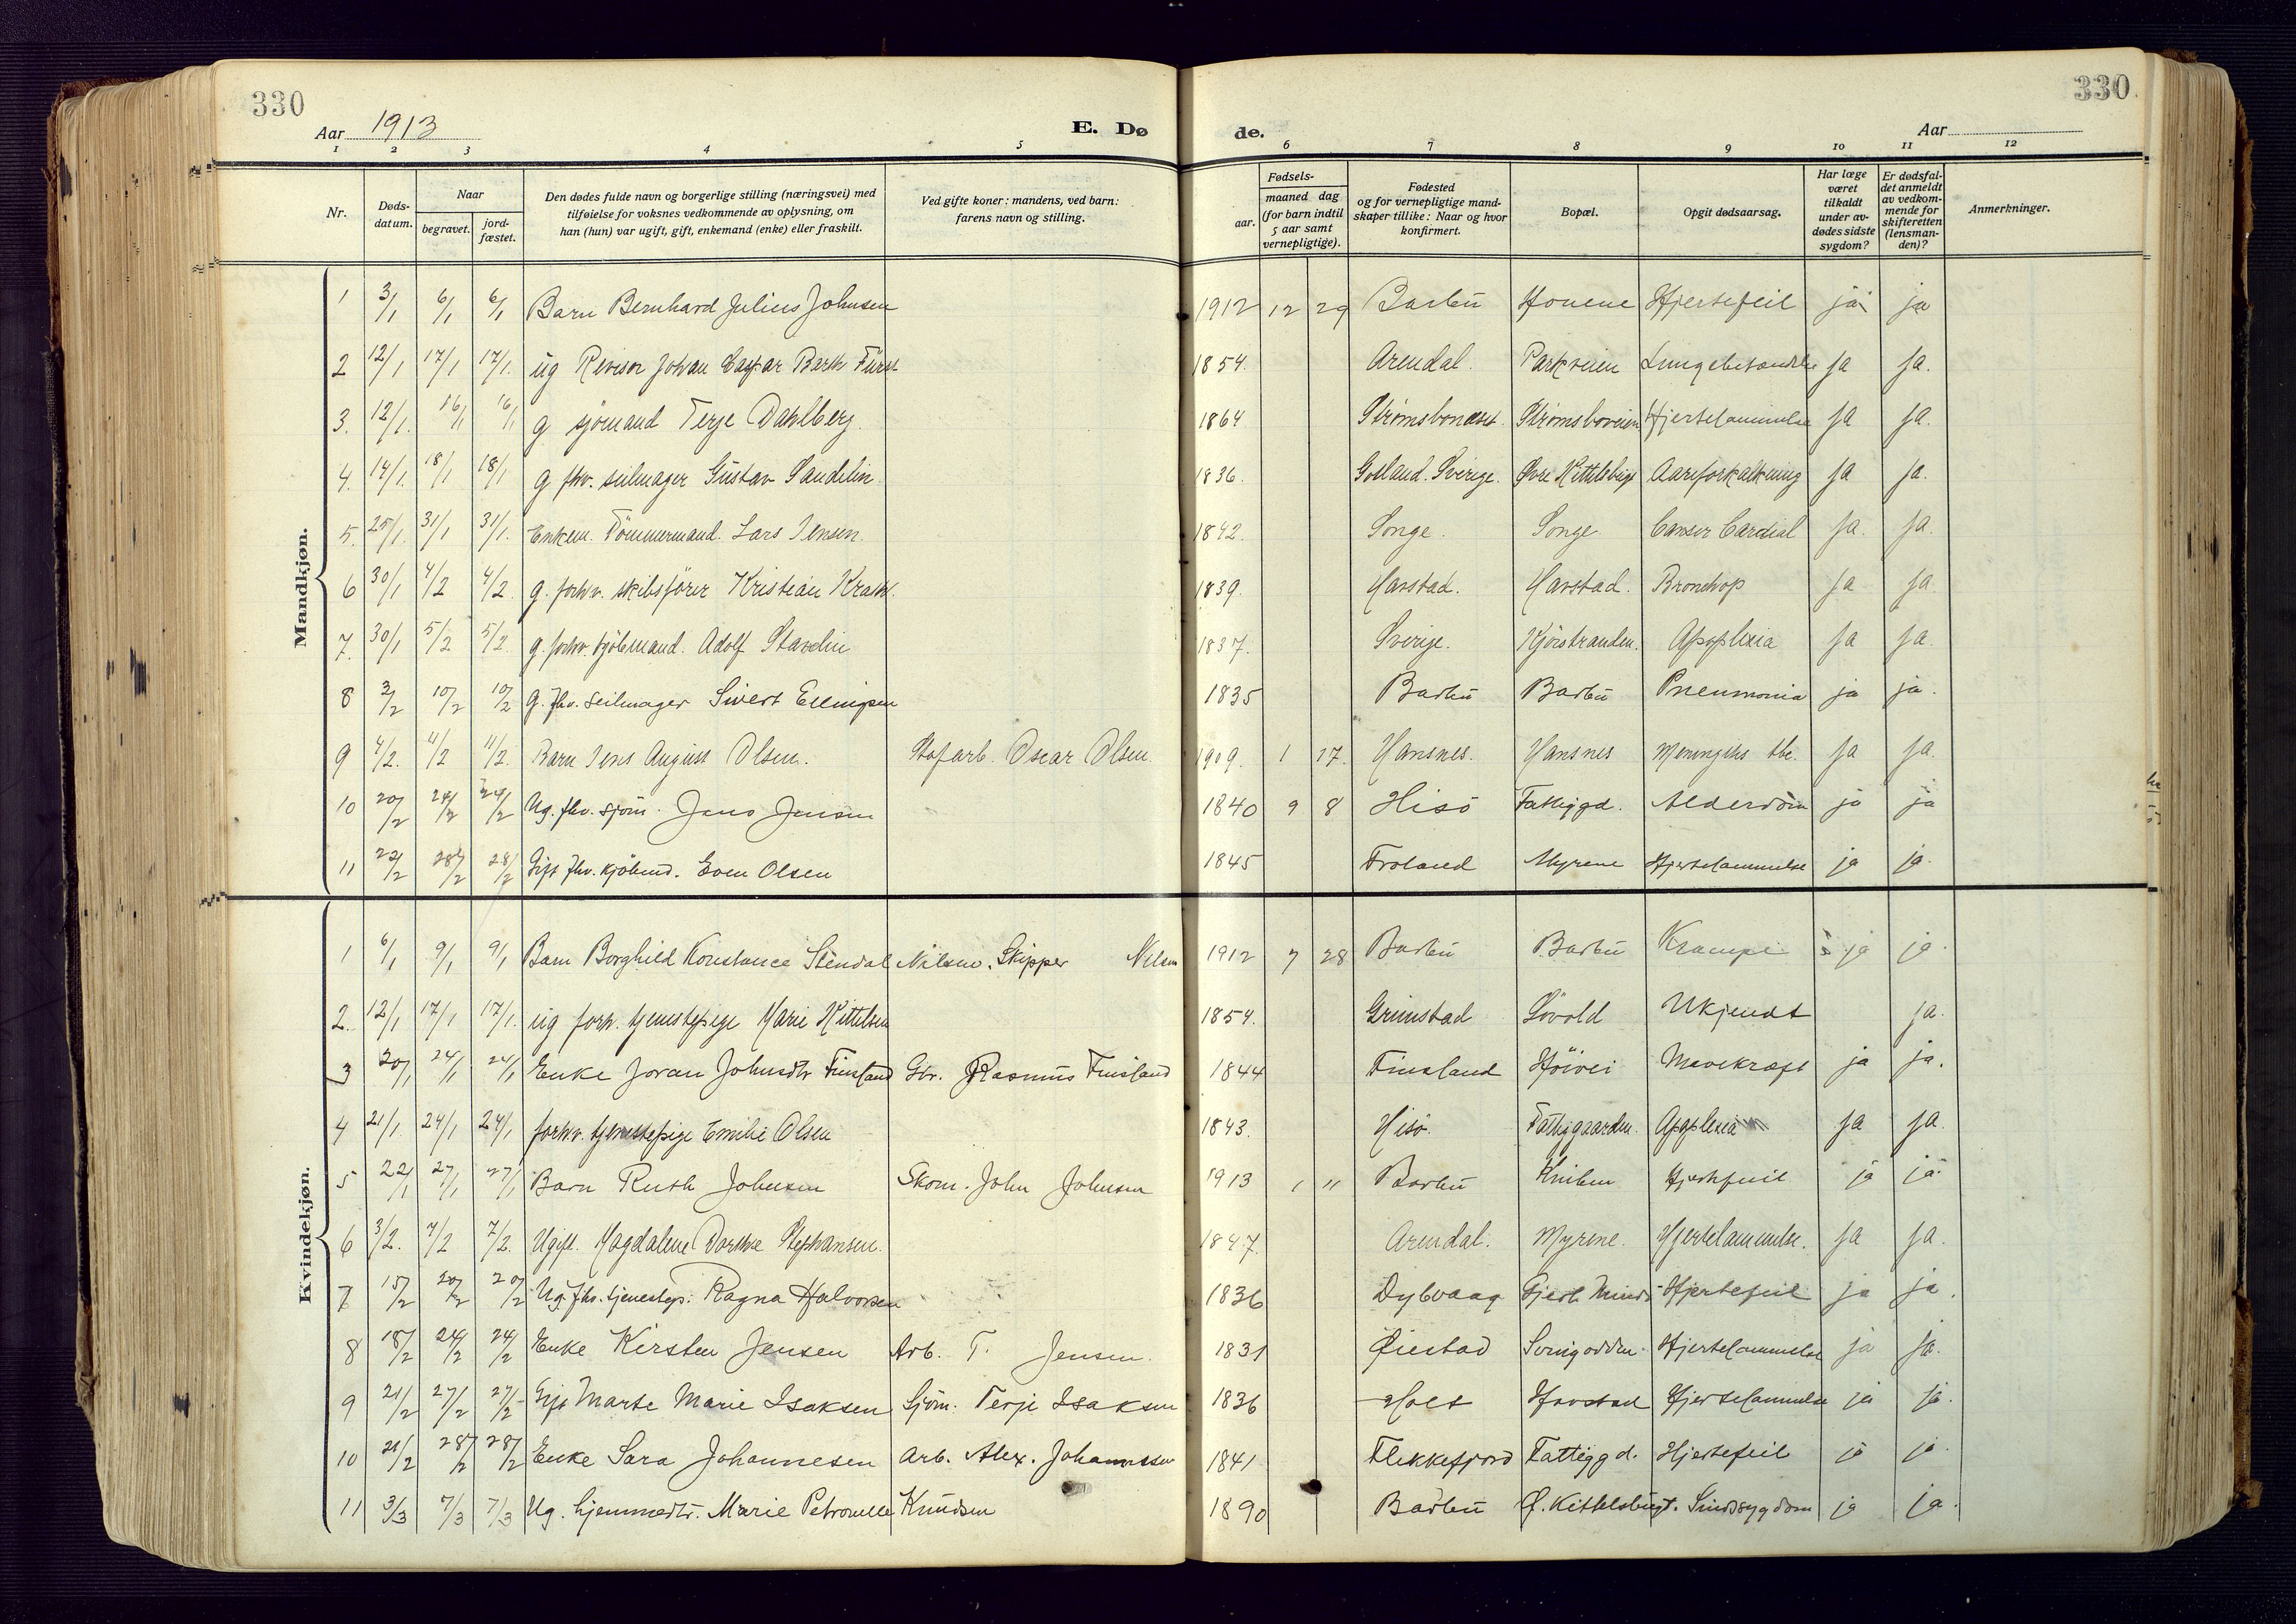 330
330
Aar 1913
E. Dø
de.
Aar
1 2 3 4 5 6 7 8 9 10 11 12
Nr.
Døds-
datum.
Naar
begravet.
jord-
fæstet.
Den dødes fulde navn og borgerlige stilling (næringsvei) med
tilføielse for voksnes vedkommende av oplysning, om
han (hun) var ugift, gift, enkemand (enke) eller fraskilt.
Ved gifte koner: mandens, ved barn:
farens navn og stilling.
Fødsels-
aar.
maaned dag
(for barn indtil
5 aar samt
vernepligtige).
Fødested
og for vernepligtige mand-
skaper tillike: Naar og hvor
konfirmert.
Bopæl.
Opgit dødsaarsag.
Har læge
været
tilkaldt
under av-
dødes sidste
sygdom?
Er dødsfal-
det anmeldt
av vedkom-
mende for
skifteretten
(lensman-
den)?
Anmerkninger.
Mandkjøn.
1 3/1 6/1 6/1 Barn Bernhard Julius Johnsen 1912 12 29 Barbu Hjertefeil ja ja
2 12/1 17/1 17/1. ug Revisor Johan Caspar Barth Fürst 1854. Arendal. Parkveien ja ja.
3. 12/1. 16/1 16/1 g sjömand Terje Dahlberg. 1864 Strømsboneset Strømsboveien Hjertelammelse ja ja.
4. 14/1. 18/1 18/1 g fhv. seilmager Gustav Sandelin 1836. Gotland. Sverige. Øvre Kittelsbugt Aareforkalkning ja ja.
5. 25/1. 31/1 31/1. Enkem. Tömmermand. Lars Jensen. 1842. Songe. Songe Canser Cardial ja. ja.
6 30/1 4/2 4/2. g. forhv. skibsförer Kristian 1839. Havstad. Havstad. ja ja.
7. 30/1 5/2 5/2. g. forhv. Adolf 1837. Sverige. Kjörstranden. Apoplexia ja ja.
8 3/2 10/2 10/2 G. fhv. Seilmager Sivert Ellingsen 1835 Barbu Barbu Pneumonia ja ja.
9 4/2. 11/2 11/2. Barn Jens August Olsen. Oscar Olsen. 1909. 1 17. Hansnes. Hansnes Meningitis tbc. ja ja.
10 20/2 24/2 24/2 Ug. fhv. sjöm. Jens Jensen 1840 9 8 Hisö Fattiggd. Alderdom ja ja
11 22/2 28/2 28/2 Gift fhv. kjöbmd. Even Olsen 1845 Froland Myrene Hjertelammelse ja ja.
Kvindekjøn.
1 6/1 9/1 9/1 Barn Borghild Konstance Stendal Nilsen. Skipper Nilsen 1912 7 28 Barbu Barbu Krampe ja ja.
2. 12/1 17/1 17/1. ug forh. tjenestepige Marie Kittelsen 1854. Grimstad Lövold Ukjendt ja.
3 20/1 24/1 24/1 Enke Joran Johnsdtr Finsland Gbr. Rasmus Finsland 1844 Finsland Höivei Mavekræft ja ja.
4 21/1. 24/1 24/1 forhv. tjenestepige Emilie Olsen 1843. Hisö. Fattiggaarden. Apoplexia ja ja.
5 22/1 27/1 27/1 Barn Ruth Johnsen Skom. John Johnsen 1913 1 11 Barbu Hjertefeil ja ja.
6 3/2. 7/2 7/2. Ugift. Magdalene Dorthe Stephansen. 1847. Arendal. Myrene. Hjertelammelse. ja ja.
7 15/2 20/2 20/2 Ug. fhv. tjenestep. Ragna Halvorsen 1836 Dybvaag Hjertefeil ja ja.
8 18/2 24/2 24/2 Enke Kirsten Jensen Arb. T. Jensen. 1831 Øiestad Songodden. Hjertelammelse ja ja.
9 21/2 27/2 27/2 Gift Marte Marie Isaksen Sjöm. Terje Isaksen 1836 Holt Havstad Hjertelammelse ja ja.
10 21/2 28/2 28/2 Enke Sara Johannesen Arb. Alex. Johannessen 1841 Flekkefjord Fattiggd. Hjertefeil ja ja.
11 3/3 7/3 7/3 Ug. hjemmedtr. Marie Petronelle Knudsen 1890 Barbu Ø. Kittelsbugt. Sindssygdom ja ja.